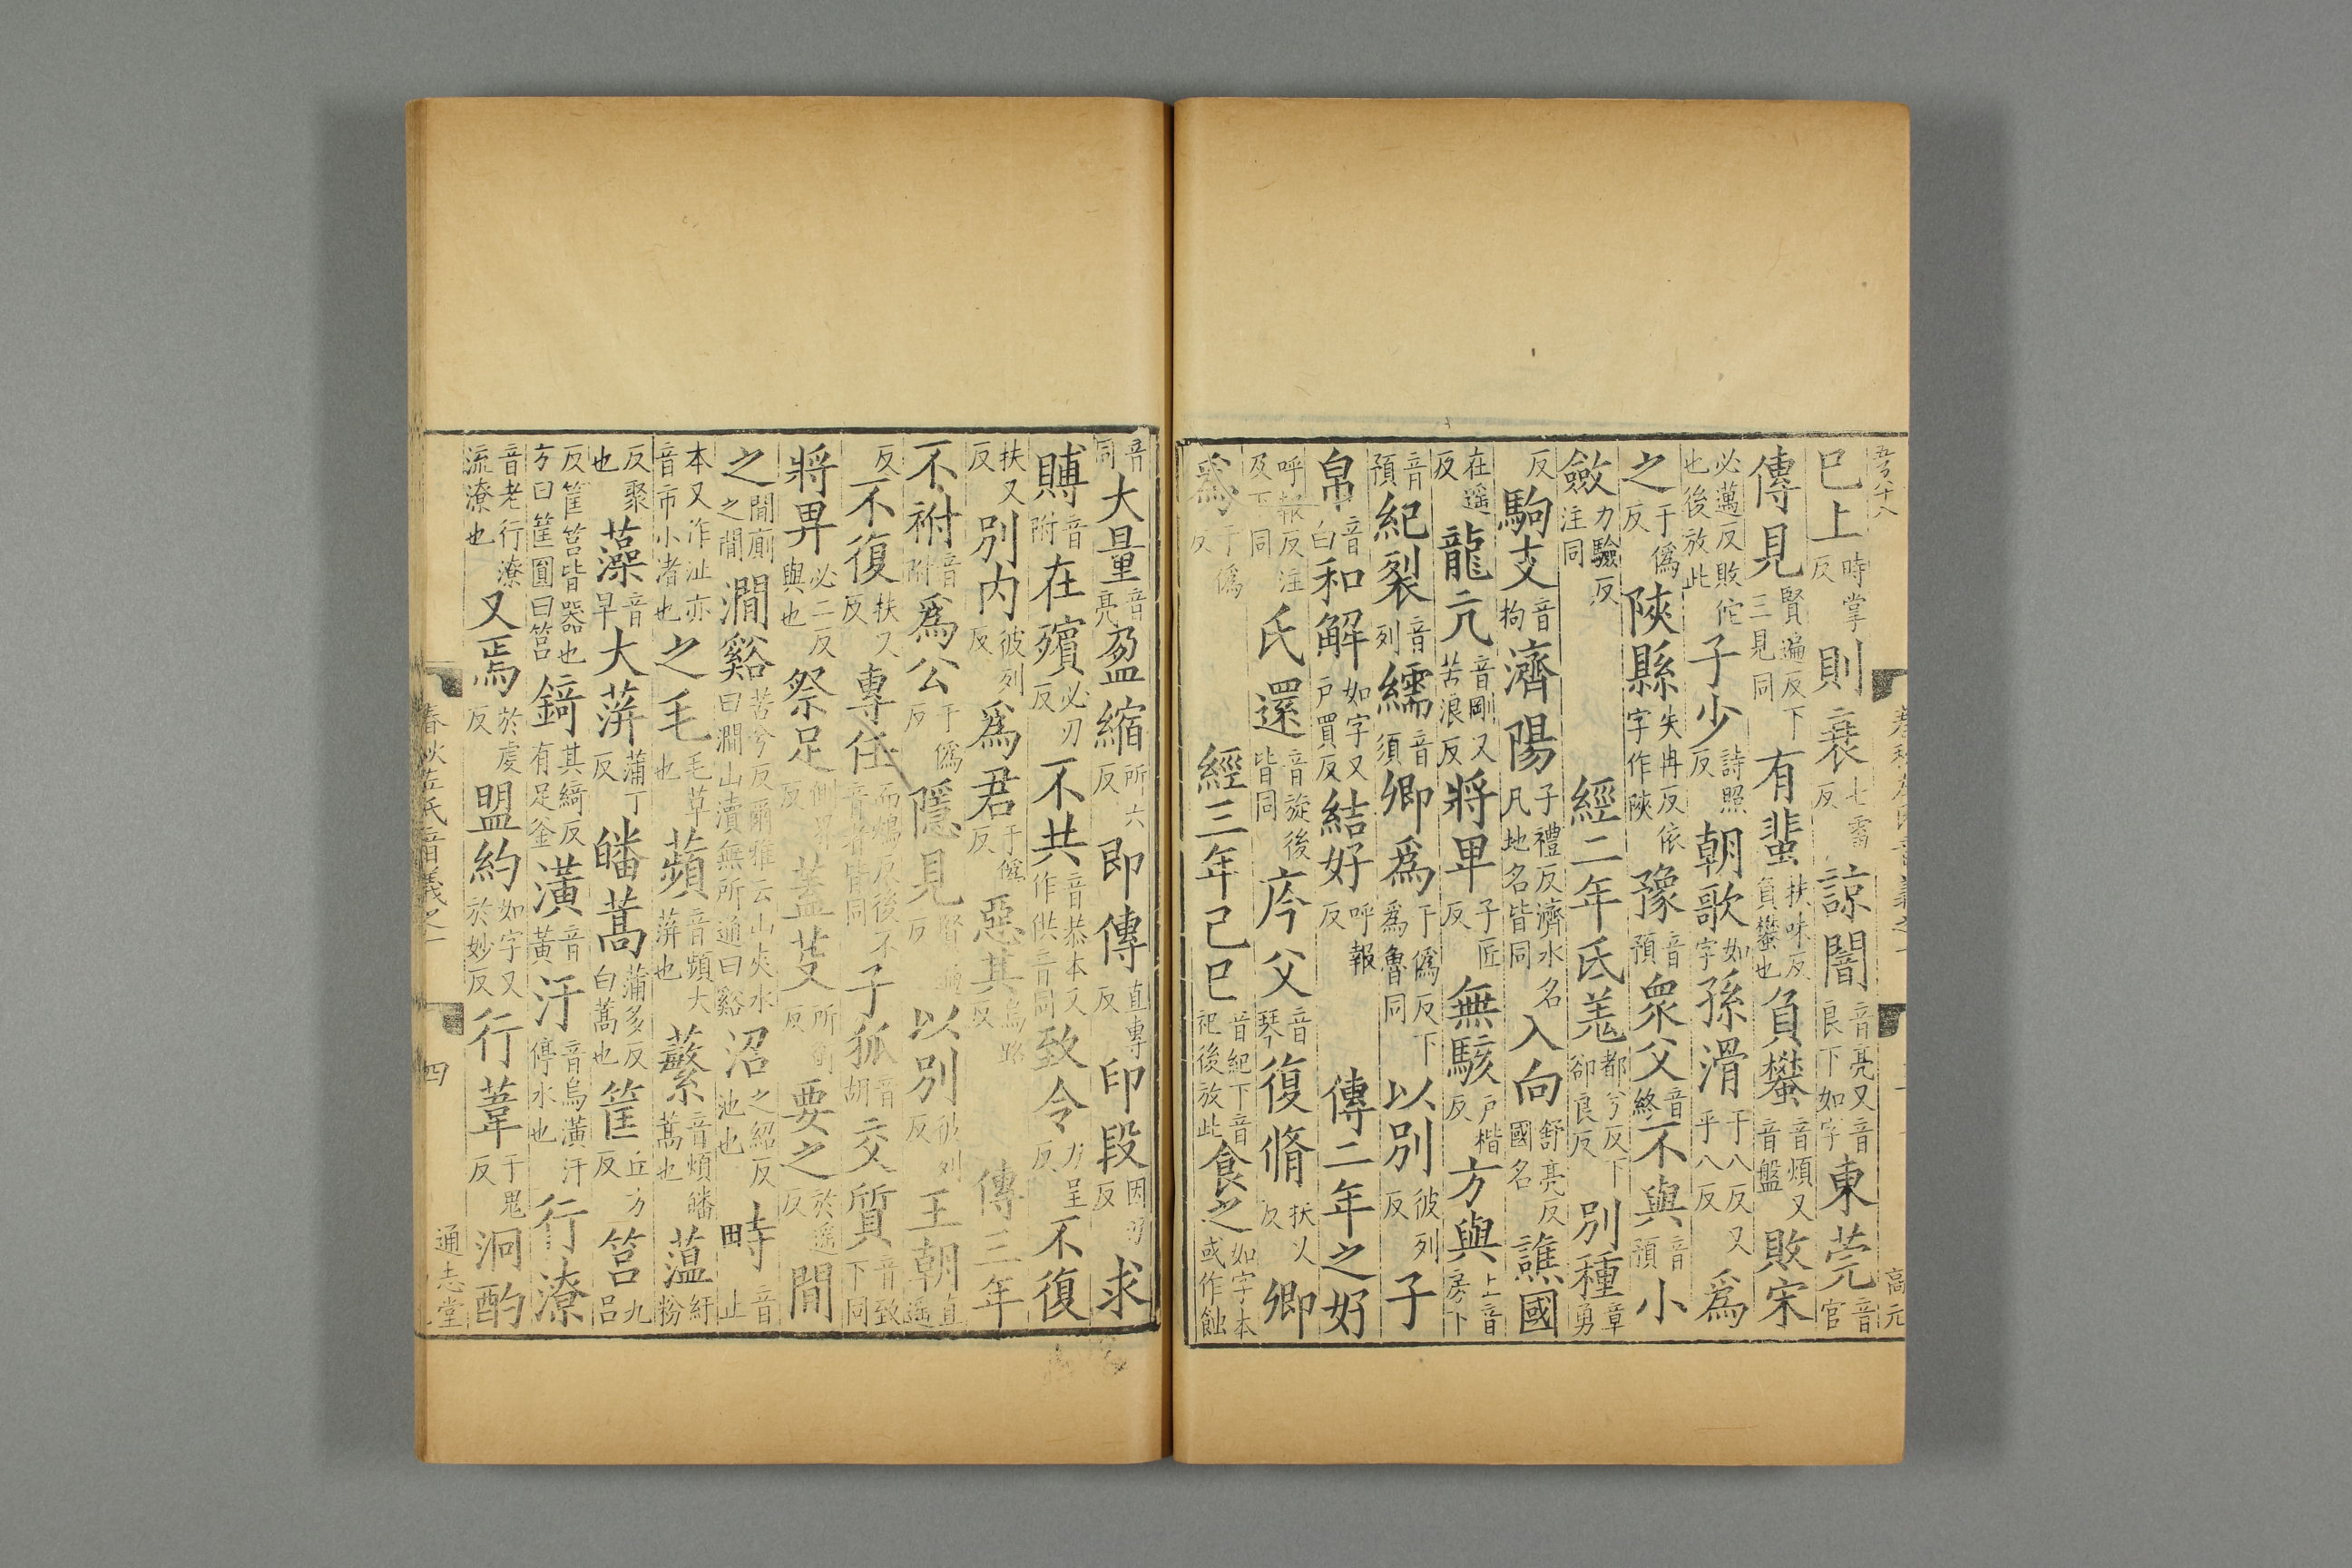 巳上時掌反則衰七雷反諒闇音亮又音良下如字東莞音官
傳見賢遍反下三見同有蜚扶味反負蠜也負蠜音煩又音盤敗宋
必邁反敗佗也後放此子少詩照反朝歌如字孫滑于八反又乎八反爲
之于僞反陝縣失冉反依字作陝豫音預衆父音終不與音預小
斂力驗反注同經二年氐羌都兮反下卻良反別種章勇
反駒支音拘濟陽子禮反濟水名凡地名皆同入向舒亮反國名譙國
在遥反龍亢音剛又苦浪反將卑子匠反無駭户楷反方與上音房下
音預紀裂音列繻音須卿爲于僞反下爲魯同以別彼列反子
帛音白和解如字又户買反結好呼報反傳二年之好
呼報反注及下同氏還音旋後皆同庈父音琴復脩扶又反卿
爲于僞反經三年己巳音紀下音祀後放此食之如字本或作蝕
音同大量音亮盈縮所六反即傳直專反印段因刃反求
賻音附在殯必刃反不共音恭本又作供音同致令力呈反不復
扶又反別内彼列反爲君于僞反惡其烏路反傳三年
不祔音附爲公于僞反隱見賢遍反以別彼列反王朝直遥
反不復扶又反專任而鴆反後不音者皆同子狐音胡交質音致下同
將畀必二反與也祭足側界反蓋芟所銜反要之於遥反間
之間廁之間澗谿苦兮反爾雅云山夾水曰澗山瀆無所通曰谿沼之紹反池也畤音止
本又作沚亦音市小渚也之毛毛草也蘋音頻大蓱也蘩音煩皤蒿也薀紆粉
反聚也藻音早大蓱蒲丁反皤蒿蒲多反白蒿也筐丘方反筥九吕
反筐筥皆器也方曰筐圓曰筥錡其綺反有足釜潢音黄汙音烏潢汙停水也行潦
音老行潦流潦也又焉於虔反盟約如字又於妙反行葦于鬼反泂酌
春秋左氏音義之一
四
通志堂